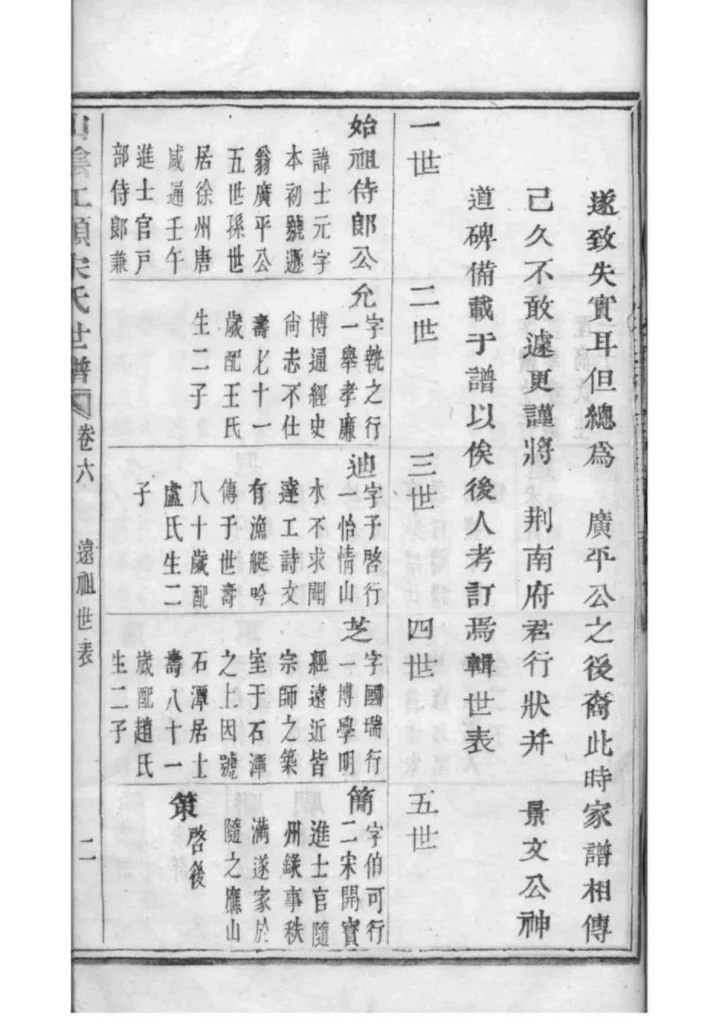 遂致失實耳但總爲　廣平公之後裔此時家譜相傳
已久不敢遽更謹將　荆南府君行狀并　景文公神
道碑備載于譜以俟後人考訂焉輯世表
一世　二世　三世　四世　五世
始祖侍郎公
諱士元字
本初號遜
翁廣平公
五世孫世
居徐州唐
咸通壬午
進士官戸
部侍郎兼
允
字執之行
一舉孝廉
博通經史
尚志不仕
壽七十一
歲配王氏
生二子
迪
字子啓行
一怡情山
水不求聞
達工詩文
有漁艇吟
傳于世壽
八十歲配
盧氏生二
子
芝
字國瑞行
一博學明
經遠近皆
宗師之築
室于石潭
之上因號
石潭居士
壽八十一
歲配趙氏
生二子
簡
字伯可行
二宋開寶
進士官隨
州錄事秩
满遂家於
隨之應山
策
啓後
山陰江頭宋氏世譜　卷六　遠祖世表　二